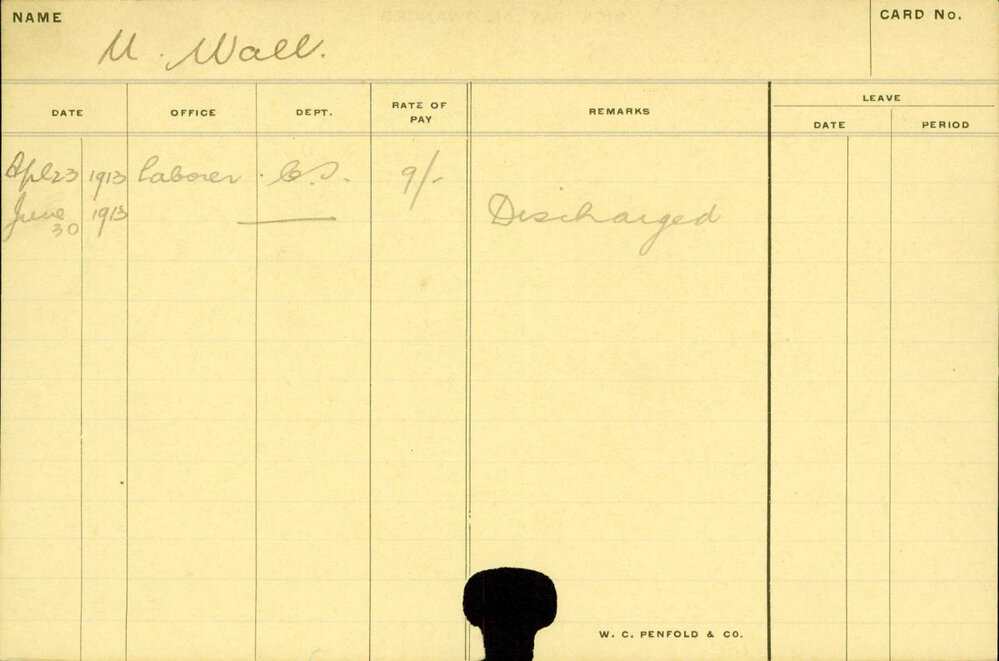 NAME
M. Wall.
CARD No.
DATE OFFICE DEPT. RATE OF PAY REMARKS LEAVE
DATE PERIOD
Apl 23 1913 Laborer C.S. 9/-
June 30 1913 Discharged
W. C. PENFOLD & CO.